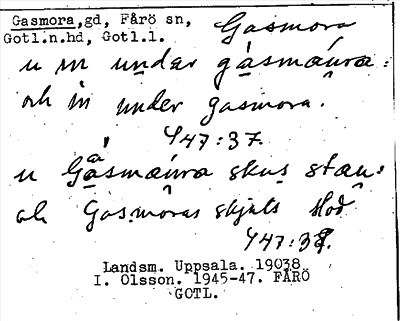 Gasmora,gd, Fårö sn,
Gotl.n.hd, Gotl.l.
Gasmora
u in undar gasmæura:
och in under gasmora.
447:37.
u Gåsmæura skus stæu:
och Gasmoras skjuts stod
447:38.
Landsm. Uppsala. 19038
I. Olsson. 1945-47. FÅRÖ
GOTL.